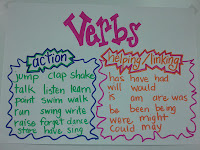 Verbs
action
jump clap shake
talk listen learn
paint swim walk
run swing write
raise forget dance
stare have sing
helping/linking
has have had
will would
is am are was
be been being
were might
could may